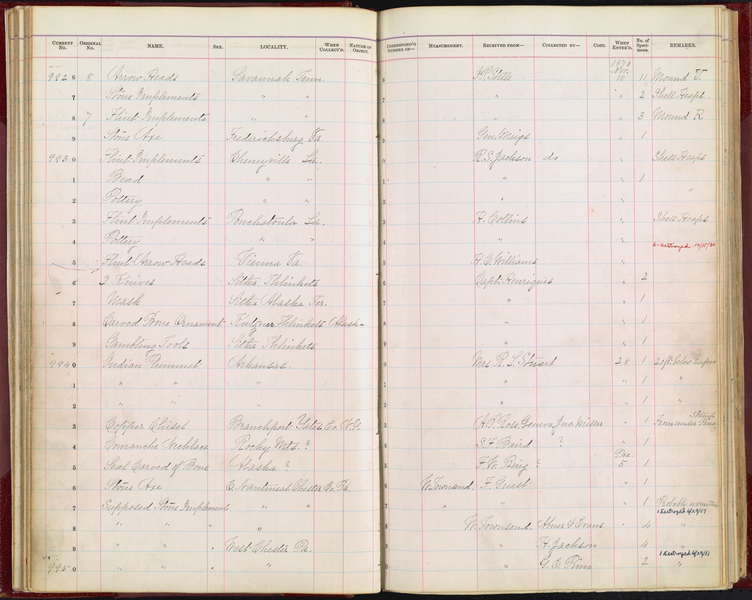 CURRENT No. ORIGINAL No. NAME. SEX. LOCALITY. WHEN COLLECT'D. NATURE OF OBJECT. CORRESPOND'G NUMBER OF— MEASUREMENT. RECEIVED FROM— COLLECTED BY— COST. WHEN ENTER'D. No. of Speci-mens. REMARKS.
1870
Nov.
9926 8 Arrow Heads Savannah Tenn. 6 18 11 Mound V.
7 Stone Implements " " 7 " " 2 Shell Heaps
8 7 Flint Implements " " 8 " " 3 Mound R
9 Stone Axe Frederichsburg Va 9 Gen. Meigs " 1
9930 Flint Implements Cheneyville La. 0 R. S. Jackson do " Shell Heaps
1 Bead " " 1 " " 1
2 Pottery " " 2 " " "
3 Flint Implements Ponchatoula La. 3 H. Collins " Shell Heaps
4 Pottery " " 4 " "
destroyed
5 Flint Arrow Heads Vienna Va. 5 H. C. Williams "
6 2 Knives Sitka Thlinkets 6 Capt. Henriques " 2
7 Mask Sitka Alaska Ter. 7 " " 1
8 Carved Bone Ornament Thlinkets (Alask- 8 " " 1
9 Gambling Tools Sitka Thlinkets 9 " " 1
9940 Indian Plummet Arkansas 0 Mrs. P. L. Stuart 28 1 20 ft. below Surface
1 " " " 1 " " 1 "
2 " " " 2 " " 1 "
3 Copper Chisel Branchport Yates Co. N.Y. 3 " 1 From under
4 Comanche Necklace Rocky Mts. ? 4 S. F. Baird ? " 1
Dec.
5 Seal Carved of Bone Alaska ? 5 ? 5 1
6 Stone Axe Chester Co. Pa. 6 W. Townsend F. Guest " 1
7 Supposed Stone Implement " " 7 " " " 1 Probably
1 Destroyed 6/29/51
8 " " " " 8 W. Townsend Abner G Evans " 4 "
9 " " " West Chester Pa. 9 " H. Jackson " 4 "
1 Destroyed 6/29/51
9950 " " " " 0 " " 2 "